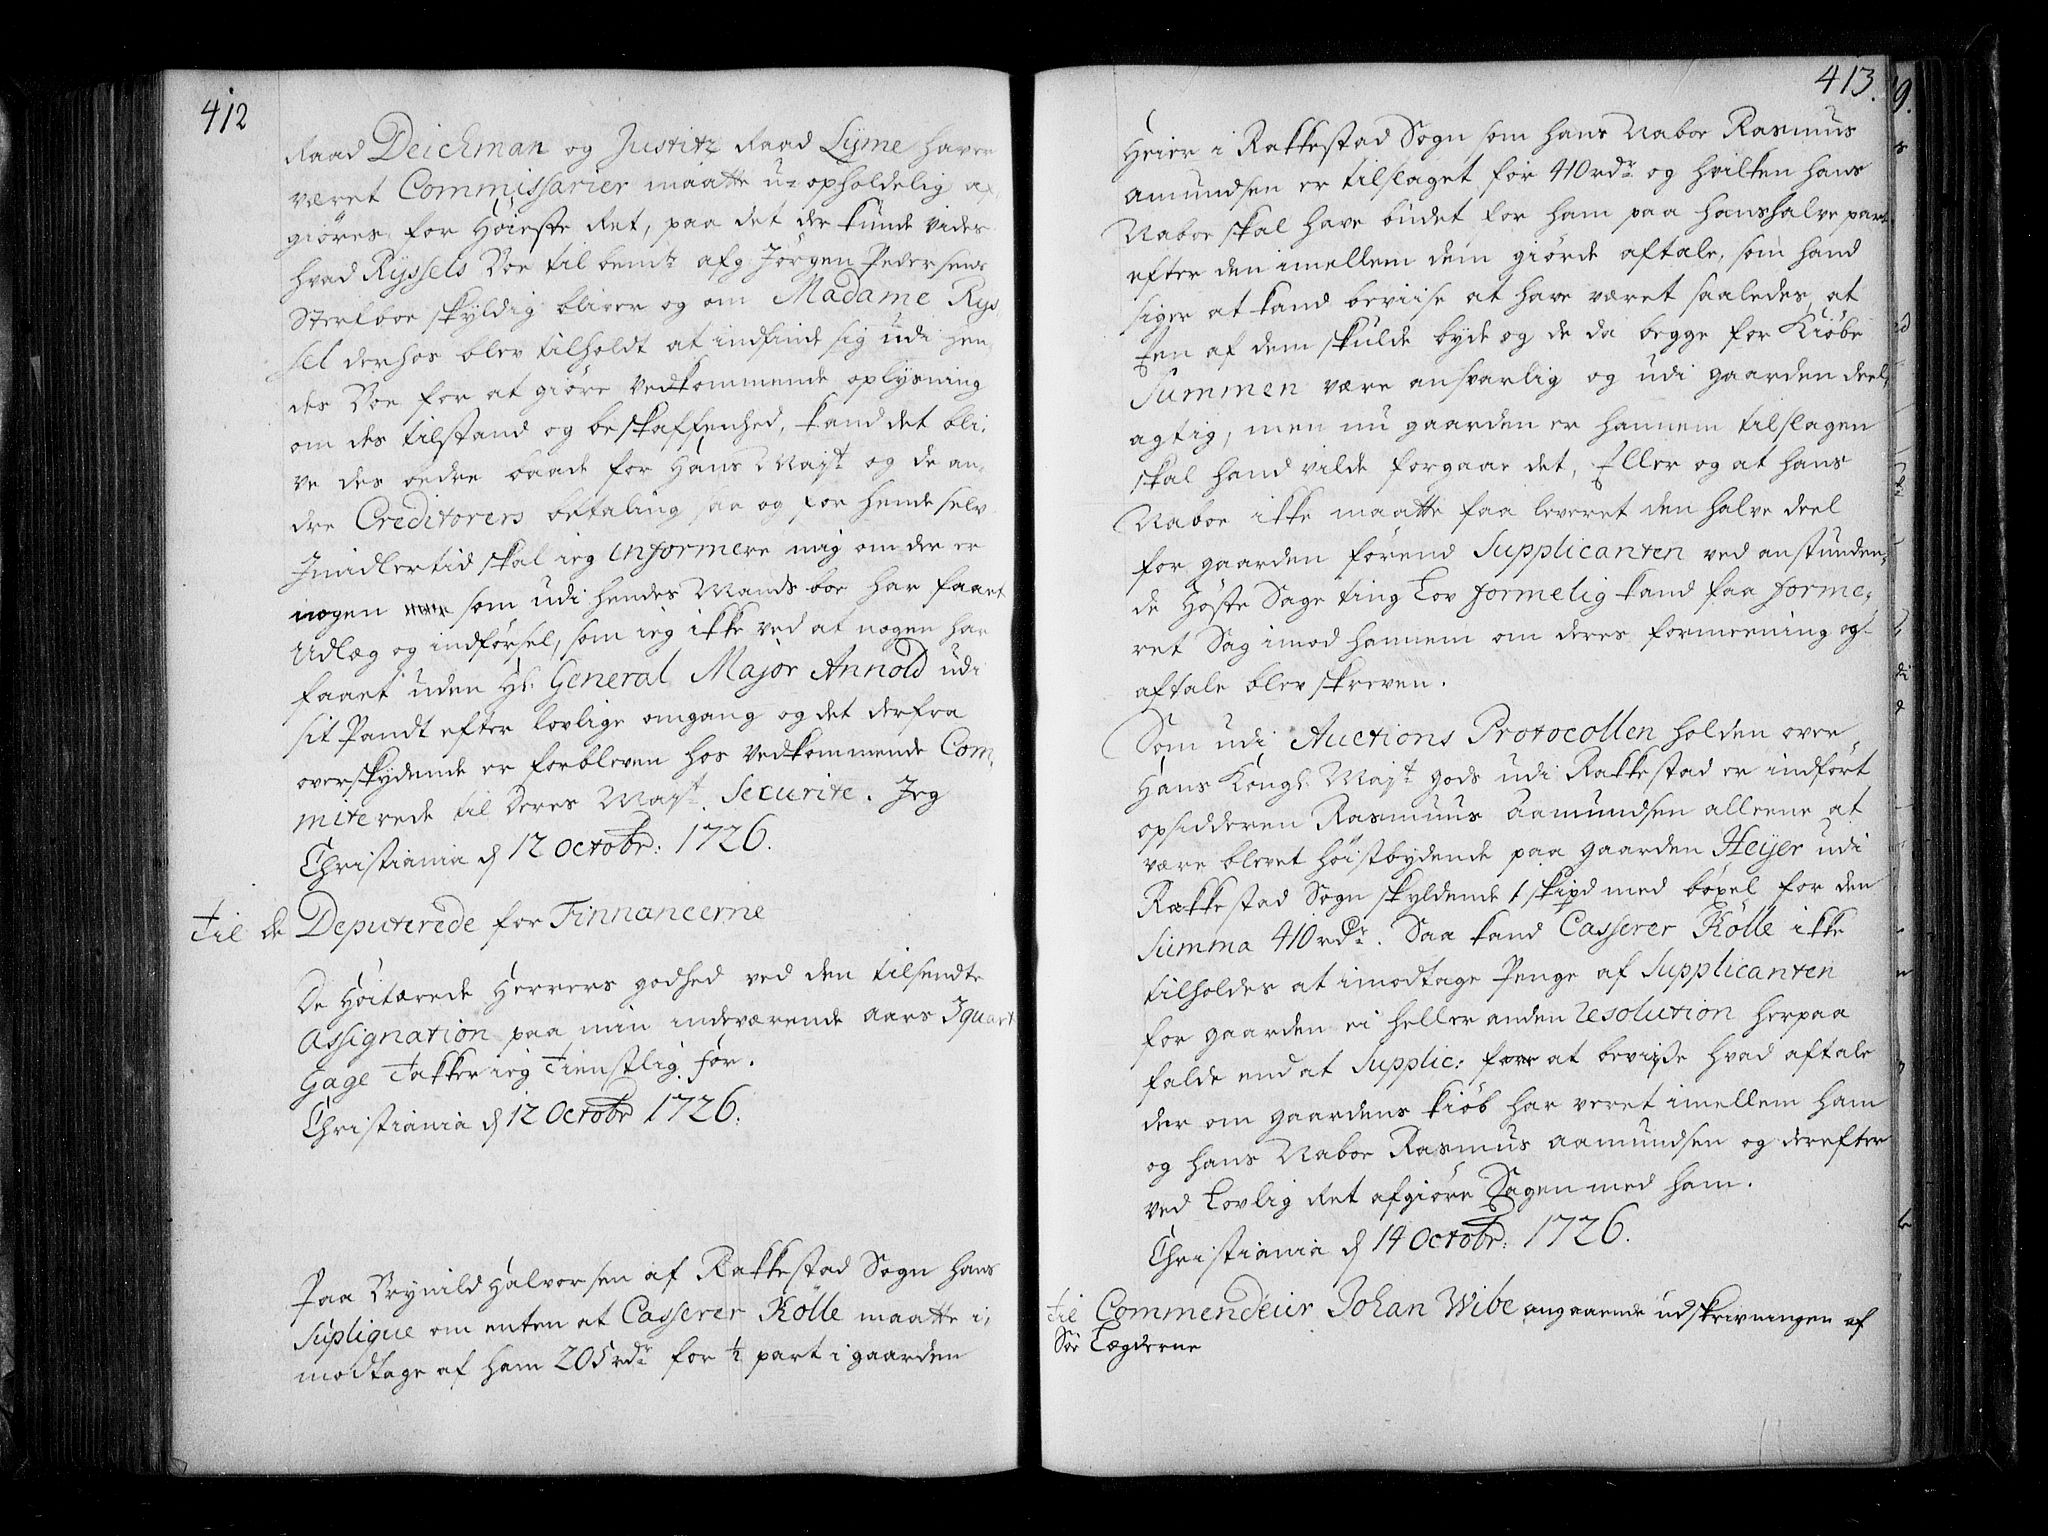 412
Raad Deichman og Justitz Raad Lyme haver
været Commissarier maatte u-opholdelig af
giøres for Høieste Ret, paa det der kunde vides
hvad Ryssels Boe til bemte afg: Jørgen Pedersens
Sterfboe skyldig bliver og om Madame Rys-
sel derhos blev tilholdt at indfinde sig udi hen-
des Boe for at giøre vedkommende oplysning
om des tilstand og beskaffenhed, kand det bli-
ve des bedre baade for Hans Mayt og de an-
dre Creditorers betaling saa og for hende selv
Imidlertid skal ieg informere mig om der er
nogen som udi hendes Mands boe har faaet
Udlæg og indførsel, som ieg ikke ved at nogen har
faaet uden Hr. General Major Arnold udi
sit Pandt efter lovlige omgang og det derfra
overskydende er forbleven hos vedkommende Com-
miterede til Deres Mayt Securite. Jeg
Christiania d 12 Octobr: 1726.
Til de Deputerede for Finnancerne
De Høitærede Herrers godhed ved den tilsendte
Assignation paa min indeværende aars 3 quart
Gage Takker ieg Tienstlig for.
Christiania d 12 Octobr 1726.
Paa Brynild Halvorsen af Rakkestad Sogn hans
Suplique om enten at Casserer Kölle maatte i-
modtage af ham 205 rdr for ½ part i gaarden
413.
Heier i Rakkestad Sogn som hans Naboe Rasmus
Amundsen er tilslaget for 410 rdr og hvilken hans
Naboe skal have budet for ham paa hans halve part
efter den imellem dem giorde aftale, som hand
siger at kand beviise at have været saaledes, at
Een af dem skulde byde og de da begge for Kiöbe
Summen være ansvarlig og udi gaarden deel-
agtig, men nu gaarden er hannem tilslagen
skal hand vilde forgaae det, Eller og at hans
Naboe ikke maatte faa leveret den halve deel
for gaarden förend Supplicanten ved anstunden-
de Höste Sage ting Lov formelig kand faa forme-
ret Sag imod hannem om deres formeening og
aftale blev skreven.
Som udi Auctions Protocollen holden over
Hans Kongl. Mayt gods udi Rakkestad er indfört
opsidderen Rasmuus Aamundsen alleene at
være blevet höistbydende paa gaarden Heyer udi
Rakkestad Sogn skyldende 1 skipd med böxel for den
Summa 410 rdr. Saa kand Casserer Kölle ikke
tilholdes at imodtage Penge af Supplicanten
for gaarden ei heller anden Resolution herpaa
falde end at Supplic: at beviise hvad aftale
der om gaardens kiöb har veret imellem ham
og hans Naboe Rasmus Aamundsen og derefter
ved Lovlig Ret afgiöre Sagen med ham.
Christiania d 14 Octobr: 1726.
Til Commendeur Johan Wibe angaaende udskrivningen af
Söe Lægderne